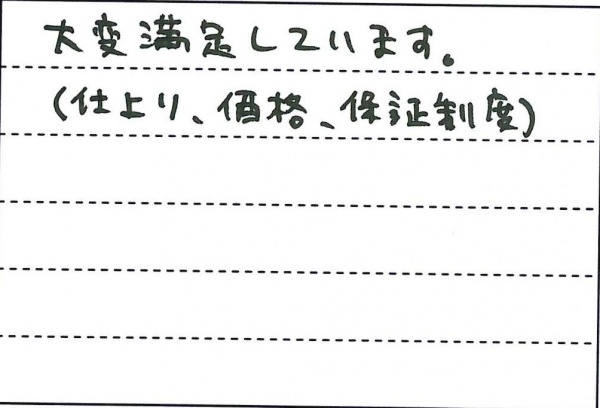 大変満足しています。
(仕上り、価格、保証制度)